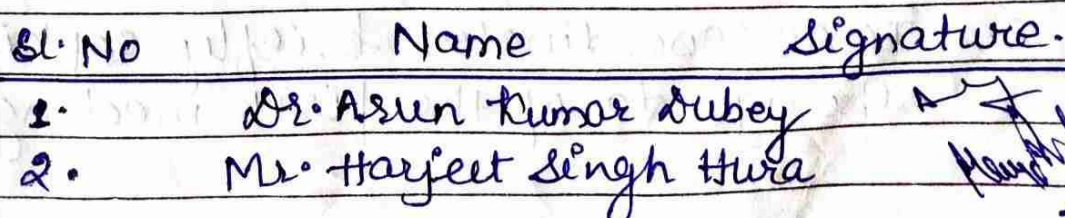 Sl. No Name Signature.
1. Dr. Arun Kumar Dubey
2. Mr. Harjeet Singh Hura